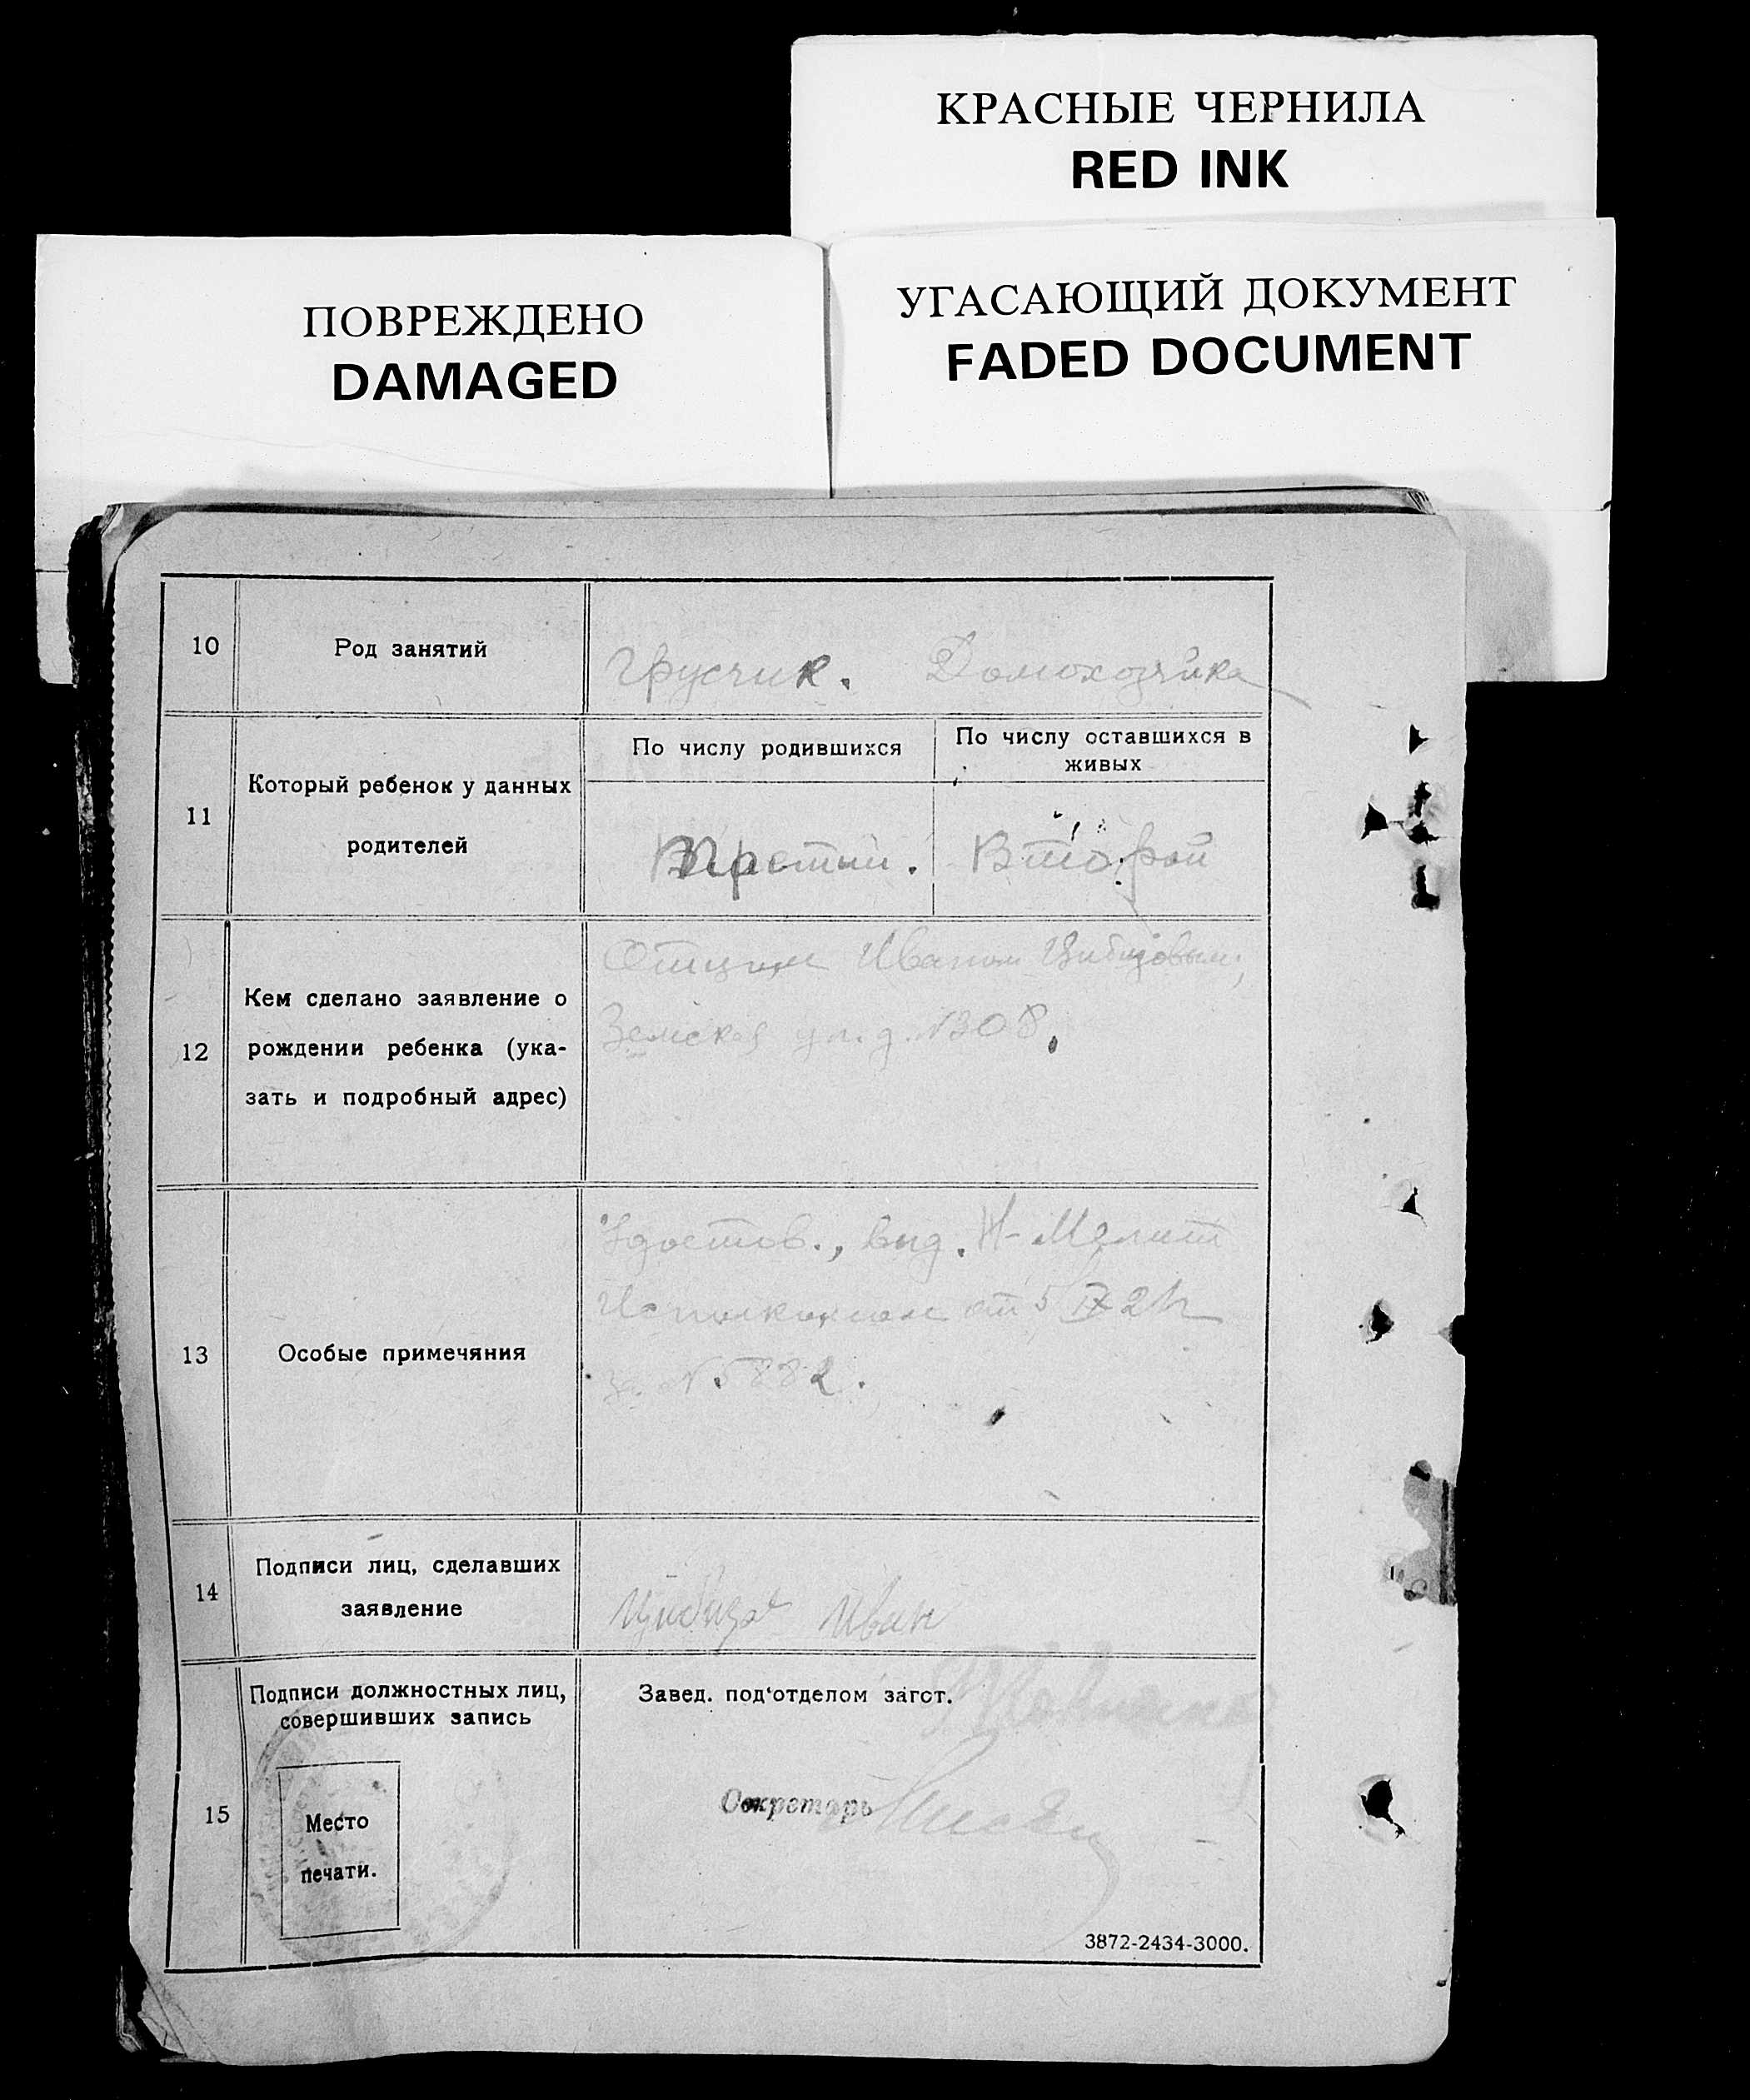 КРАСНЫЕ ЧЕРНИЛА
RED INK
ПОВРЕЖДЕНО
DAMAGED
УГАСАЮЩИЙ ДОКУМЕНТ
FADED DOCUMENT
10
Род занятий
Грусчик. Домохозяйка
11
Который ребенок у данных
родителей
По числу родившихся
По числу оставшихся в
живых
Третий.
Второй
12
Кем сделано заявление о
рождении ребенка (ука-
зать и подробный адрес)
Отцом Иваном
Земская ул. д. №308.
13
Особые примечяния
Удостов., выд. Н-Мелит
Исполкомом от 5/IX 21
за №5882.
14
Подписи лиц, сделавших
заявление
Иван
15
Подписи должностных лиц,
совершивших запись
Место
печати.
Завед. под‘отделом загст.
Секретарь
3872-2434-3000.